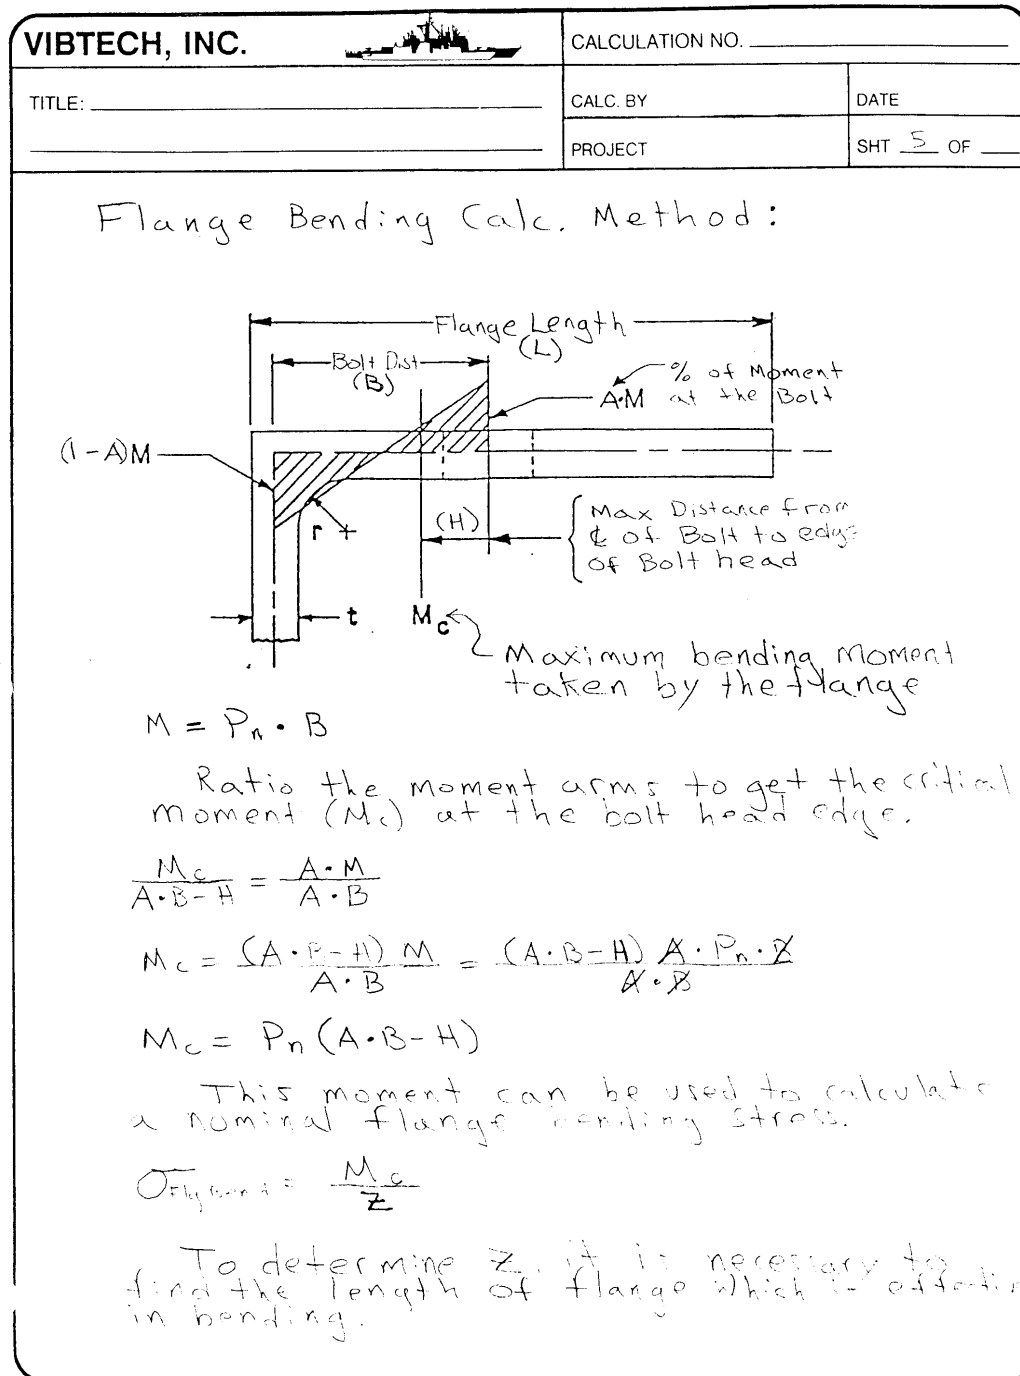 VIBTECH, INC.
CALCULATION NO.
TITLE:
CALC. BY
DATE
PROJECT
SHT 5 OF
Flange Bending Calc. Method:
Flange Length
(L)
Bolt Dist
(B)
% of Moment
A·M at the Bolt
(1-A)M
(H)
Max Distance from
℄ of Bolt to edge
of Bolt head
r
t
Mc
Maximum bending moment
taken by the flange
M = Pn · B
Ratio the moment arms to get the critical
moment (Mc) at the bolt head edge.
Mc / A·B-H = A·M / A·B
Mc = (A·B-H) M / A·B = (A·B-H) A·Pn·B / A·B
Mc = Pn (A·B-H)
This moment can be used to calculate
a nominal flange bending stress.
= Mc / Z
To determine Z, it is necessary to
find the length of flange which is effective
in bending.